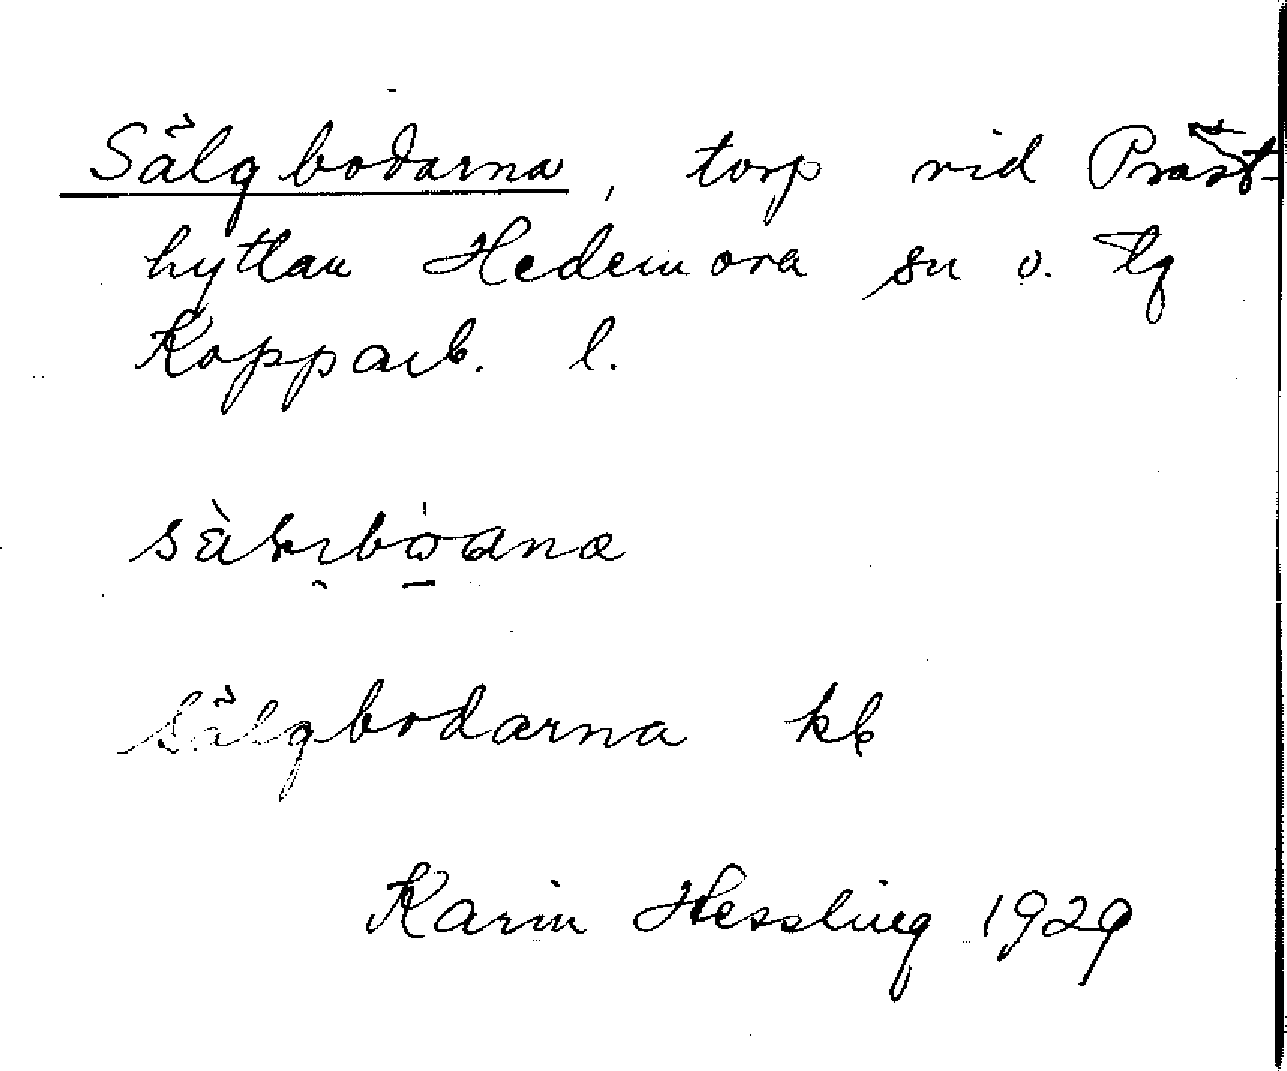 Sälgbodarna, torp vid Präst-
hyttan Hedemora sn o. tg
Kopparb. l.
Sälgbodarna kb
Karin Hessling 1929